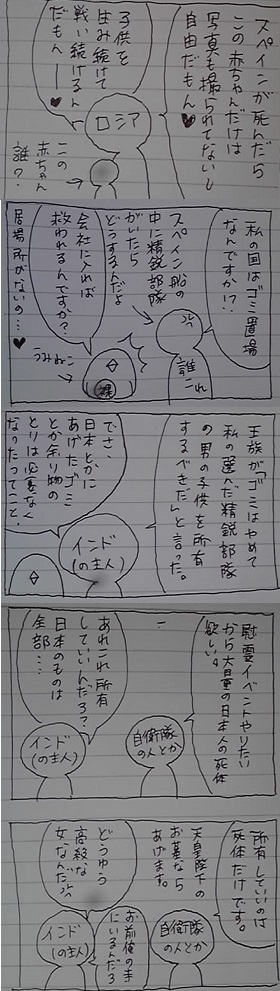 スペインが死んだら
この赤ちゃんだけは
写真も撮られてないし
自由だもん♥
子供を
生み続けて
戦い続けるん
だもん♥
ロシア
この
赤ちゃん
誰？
私の国はゴミ置場
なんですか！？
スペイン船の
中に精鋭部隊
がいたら
どうするんだよ
会社に入れば
救われるんですか？
居場所がないの…♥
誰これ
うみねこ
裸
王族が「ゴミはやめて
私の選んだ精鋭部隊
の男の子供を所有
するべきだ」と言った。
でさ、
日本とかに
あげたゴミ
とか余り物の
とりは必要なく
なったってこと。
インド
(の主人)
慰霊イベントやりたい
から大量の日本人の死体
欲しい。
あれこれ所有
していいんだろ？
日本のものは
全部…
自衛隊
の人とか
インド
(の主人)
所有していいのは
死体だけです。
天皇陛下の
お墓なら
あげます。
自衛隊
の人とか
お前俺の手
にいるんだろ
どうゆう
高級な
女なんだ
インド
(の主人)